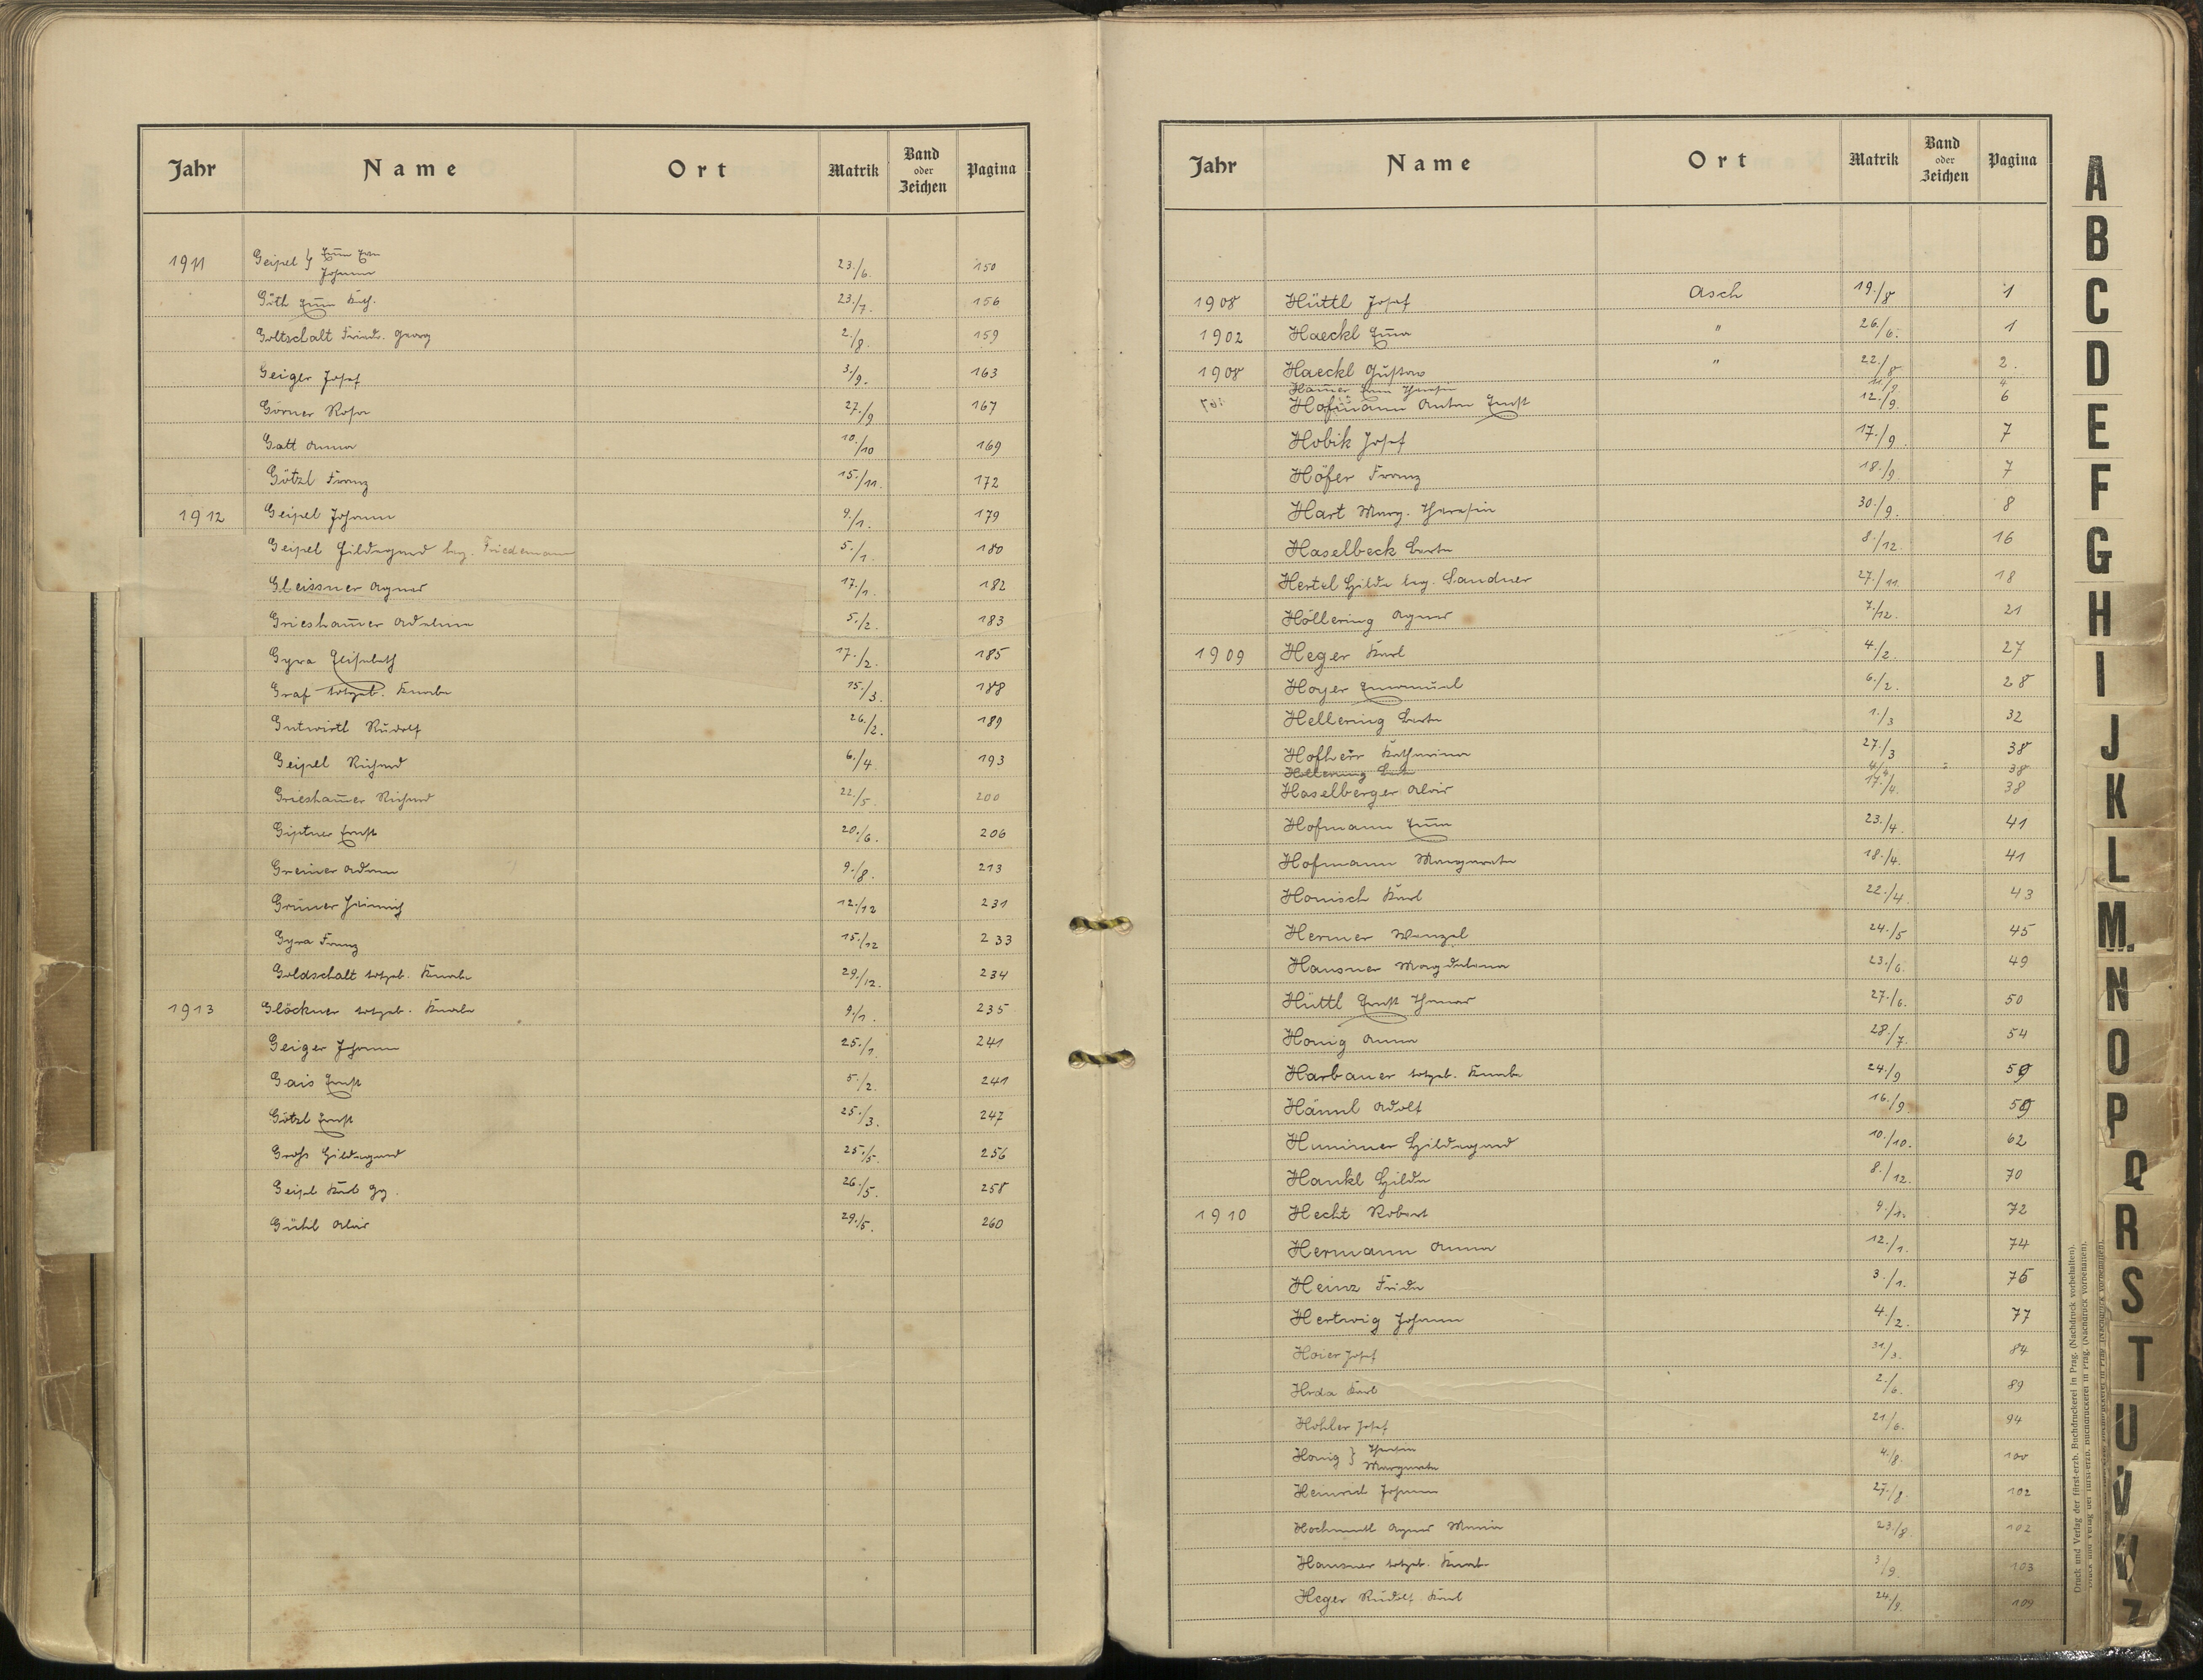 Jahr Name Ort Matrik Band oder Zeichen Pagina
1911 Geipel } Emma Eva 23./6. 150
Johann
Göth Emma Kath. 23./7. 156
Goltschalt Friedr. Georg 2./8. 159
Geiger Josef 3./9. 163
Görner Rosa 27./9 167
Gatt Anna 10./10 169
Götzl Franz 15./11. 172
1912 Geipel Johann 9./1. 179
Geipel Hildegund leg. Friedemann 5./1. 180
Gleissner Agnes 17./1. 182
Griesham̅er Adelina 5./2. 183
Gyra Elisabeth 17./2. 185
Graf totgeb. Knabe 15./3. 188
Gutwirtl Rudolf 26./2. 189
Geipel Richard 6./4. 193
Griesham̅er Richard 22./5. 200
Giptner Ernst 20./6. 206
Greiner Adam 9./8. 213
Grüner Heinrich 12./12 231
Gyra Franz 15./12 233
Goldschalt totgeb. Knabe 29./12. 234
1913 Glöckner totgeb. Knabe 9./1. 235
Geiger Johann 25./1. 241
Gais Ernst 5./2. 241
Götzl Ernst 25./3. 247
Groß Hildegund 25./5. 256
Geipel Karl Gg. 26./5. 258
Gühl Alois 29./5. 260
Jahr Name Ort Matrik Band oder Zeichen Pagina
1908 Hüttl Josef Asch 19./8 1
1902 Haeckl Emma " 26./6. 1
1908 Haeckl Gustav " 22./8 2.
Ham̅er Theresia 11./9 4
Hofmann Anton Ernst 12./9. 6
Hobik Josef 17./9. 7
Höfer Franz 18./9. 7
Hart Marg. Theresia 30./9. 8
Haselbeck Berta 8./12. 16
Hertel Hilda leg. Sandner 27./11. 18
Höllering Agnes 7./12. 21
1909 Heger Karl 4./2. 27
Hoyer Emanuel 6./2. 28
Hellering Berta 1./3 32
Hofherr Katharina 27./3 38
Hellering Berta 4./4 38
Haselberger Alois 17./4. 38
Hofmann Emma 23./4. 41
Hofmann Margareta 18./4. 41
Honisch Karl 22./4. 43
Hermer Wenzel 24./5 45
Hausner Magdalena 23./6. 49
Hüttl Ernst Thomas 27./6. 50
Honig Anna 28./7. 54
Harbauer totgeb. Knabe 24./9 59
Hännl Adolf 16./9. 59
Hummer Hildegund 10./10. 62
Hankl Hilda 8./12. 70
1910 Hecht Robert 9./1. 72
Hermann Anna 12./1. 74
Heinz Frida 3./1. 76
Hertwig Johann 4./2. 77
Hoier Josef 31./3. 84
Hrda Karl 2./6. 89
Hohler Josef 21./6. 94
Honig } Theresia 4./8. 100
Margareta
Heinrich Johann 27./8. 102
Hochmutl Agnes Maria 23./8. 102
Hausner totgeb. Knabe 3./9. 103
Heger Rudolf Karl 24./9. 109
A
B
C
D
E
F
G
H
I
J
K
L
M.
N
O
P
Q
R
S
T
U
V
W
Z
Druck und Verlag der fürst-erzb. Buchdruckerei in Prag. (Nachdruck vorbehalten).